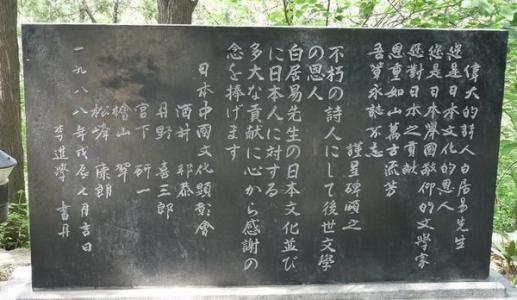 偉大的詩人白居易先生
您是日本文化的恩人
您是日本舉國敬仰的文學家
您對日本之貢献
恩重如山萬古流芳
吾輩永誌不忘
謹呈碑頌之
不朽の詩人にして後世文学
の恩人
白居易先生の日本文化並び
に日本人に対する
多大な貢献に心から感謝の
念を捧げます
日本中国文化顕彰會
酒井 邦泰
丹野 喜三郎
宮下 研一
檜山 翠
松崎 康朗
一九八八年戊辰七月吉日
李進學 書丹